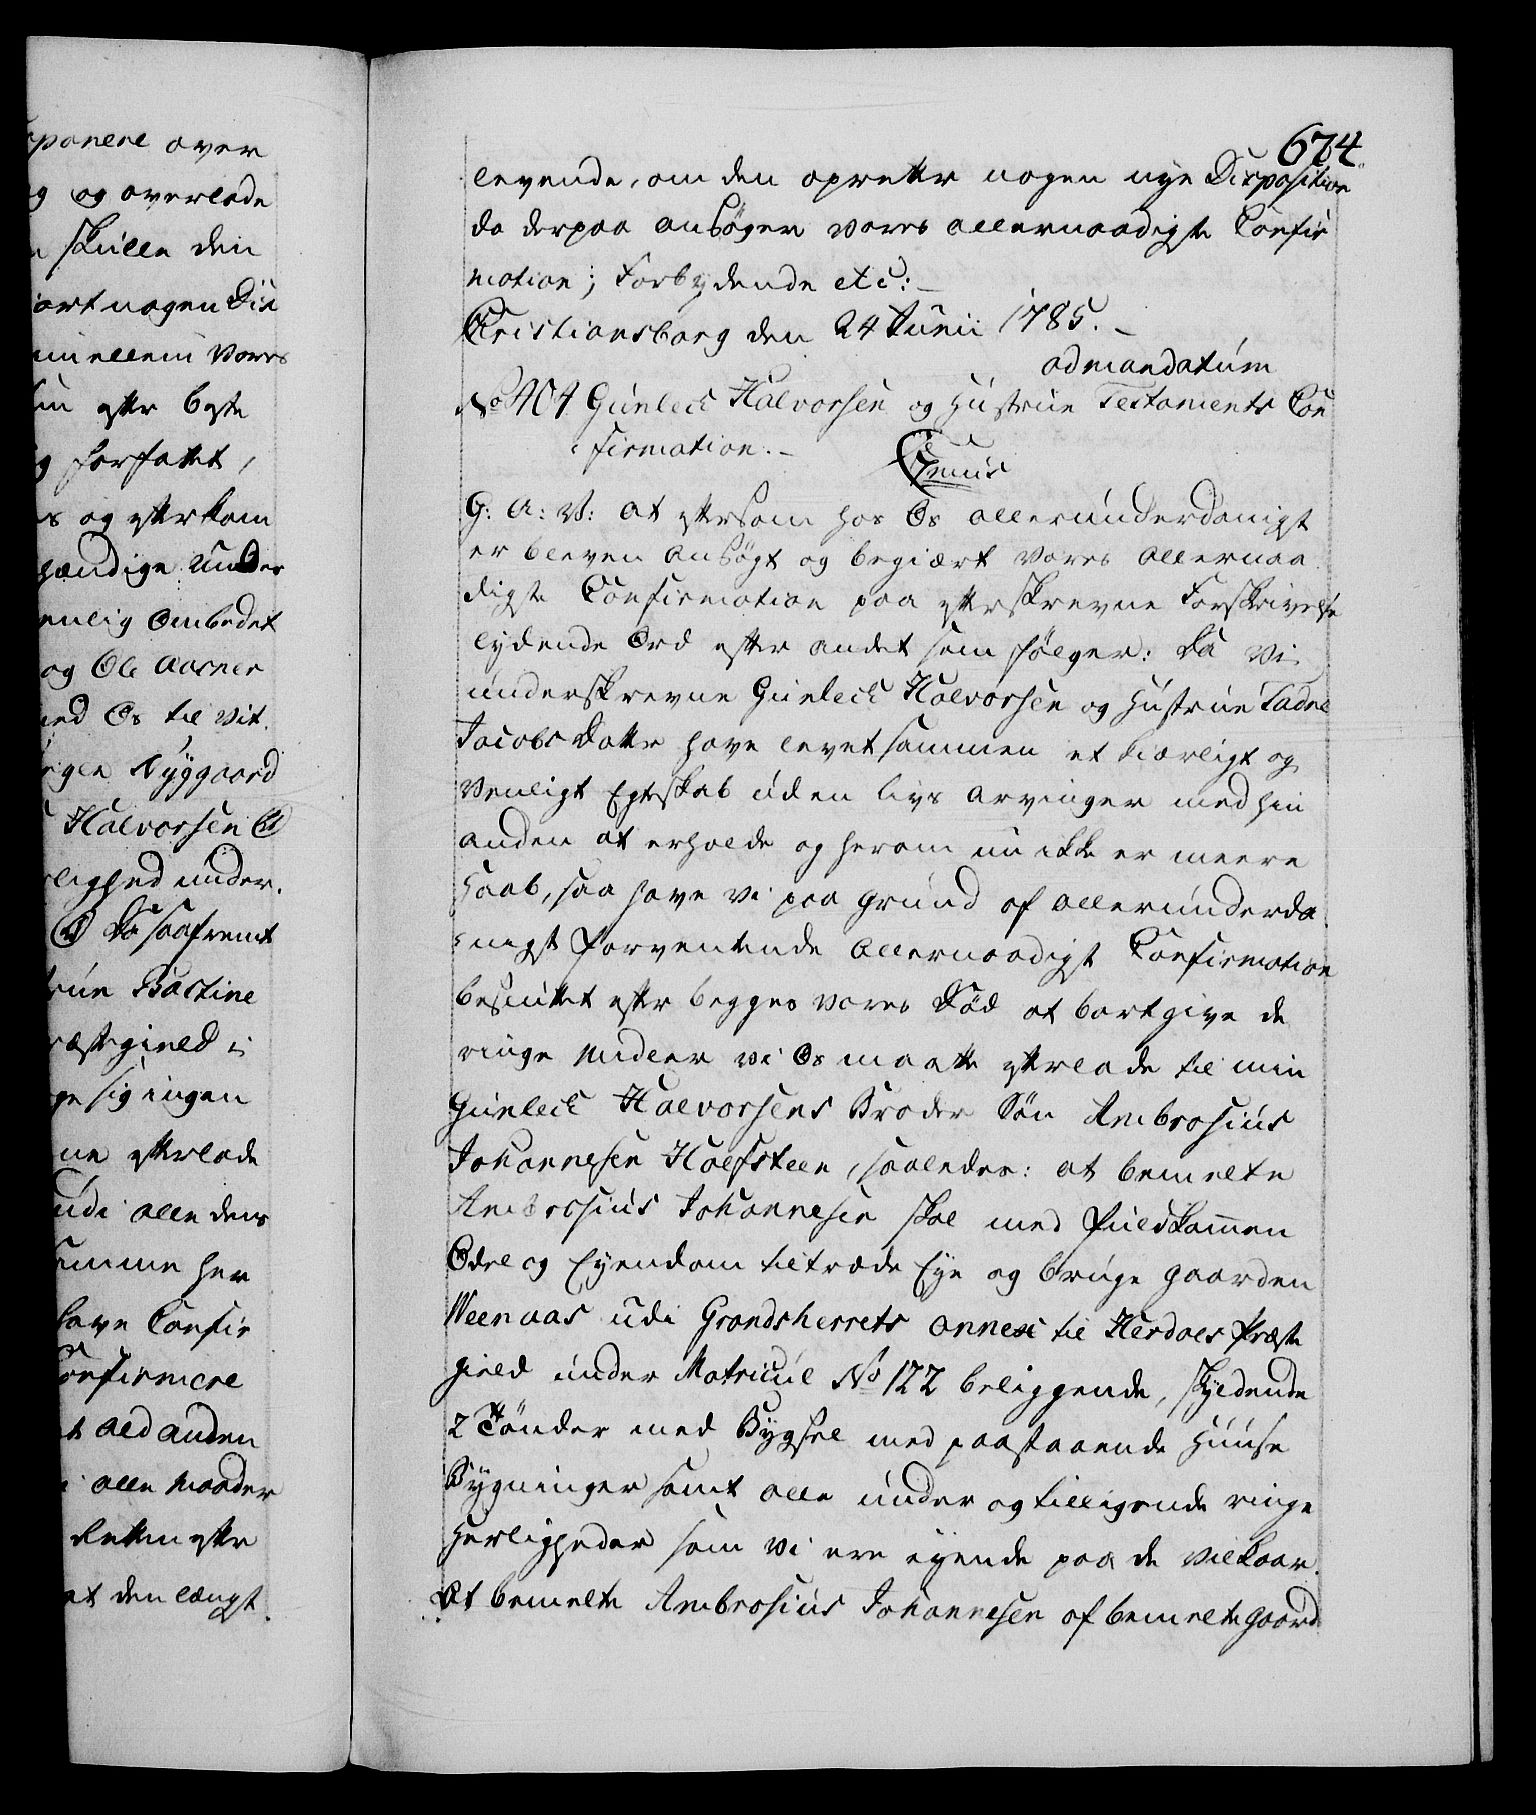 sponere over
og overlade
skulle den
iort nogen Dis
imellem Vores
efter beste
forfattet,
og efterkom
hændige Under
enlig Ombedet
og Ole Aarner
med Os til Vit.
Ryggaard
Halvorsen
lighed under.
Da saafremt
Bastine
Præstegield i
sig ingen
efterlade
udi alle dens
her
have Confir
Confirmere
ald anden
alle Maader
Retten efter
at den længst
674.
levende, om den opretter nogen nye Disposition
da derpaa ansøger vores allernaadigste Confir
mation; Forbydende etc:
Christiansborg den 24 Junii 1785.
ad mandatum
No 404 Gunleck Halvorsen og Hustrue Testaments Con
firmation.
G: A: V: at eftersom hos Os allerunderdanigst
er bleven ansøgt og begiært Vores allernaa
digste Confirmation paa efterskrevne Forskrivelse
lydende Ord efter andet som følger: Da Vi
underskrevne Gunleck Halvorsen og Hustrue Tadne
Jacobs Datter have levet sammen et kiærligt og
Venligt Egteskab uden livs Arvinger med hin
anden at erholde og herom nu ikke er meere
Haab, saa have vi paa Grund af allerunderda
nigst forventende Allernaadigst Confirmation
besluttet efter begges vores Død at bortgive de
ringe Midler vi Os maatte efterlade til min
Gunleck Halvorsens Broder Søn Ambrosius
Johannesen Holfsteen, saaledes: at bemelte
Ambrosius Johannesen skal med fuldkommen
Odel og Eyendom tiltræde Eye og bruge Gaarden
Weenaas udi Grandsherrets Annex til Herdals Præste
gield under Matricul No 122 beliggende, skyldende
2 Tønder med Bygsel med paastaaende Huuse
Bygninger samt alle under og tilligende ringe
Herligheder som vi ere eyende paa de Vilkaar.
At bemelte Ambrosius Johannesen af bemelte Gaard